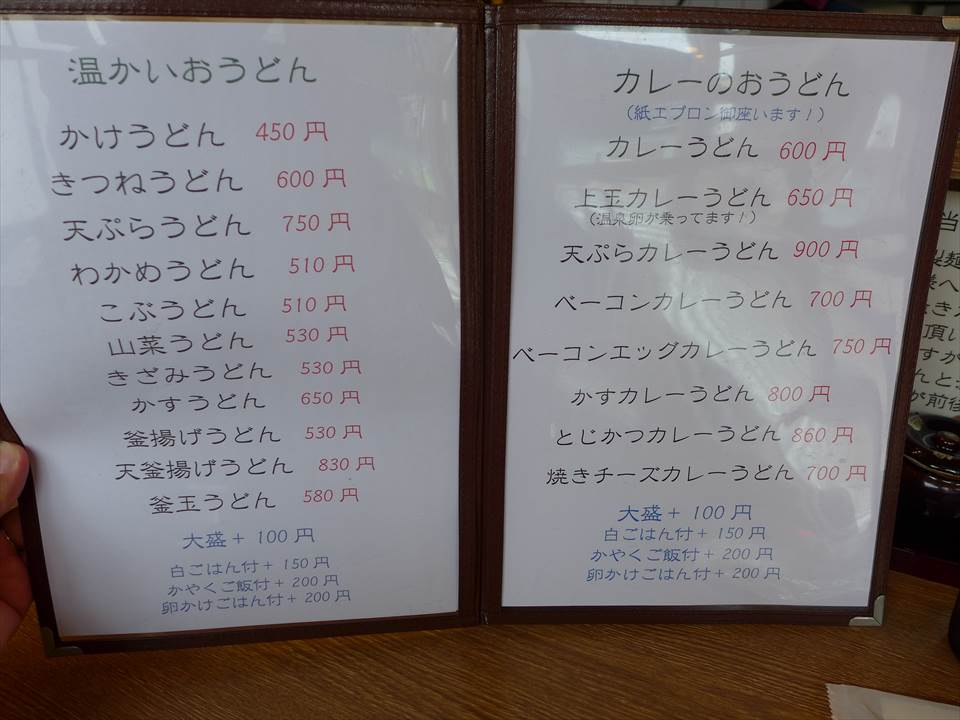 温かいおうどん
かけうどん 450円
きつねうどん 600円
天ぷらうどん 750円
わかめうどん 510円
こぶうどん 510円
山菜うどん 530円
きざみうどん 530円
かすうどん 650円
釜揚げうどん 530円
天釜揚げうどん 830円
釜玉うどん 580円
大盛+ 100円
白ごはん付+ 150円
かやくご飯付+ 200円
卵かけごはん付+ 200円
カレーのおうどん
(紙エプロン御座います!)
カレーうどん 600円
上玉カレーうどん 650円
(温泉卵が乗ってます!)
天ぷらカレーうどん 900円
ベーコンカレーうどん 700円
ベーコンエッグカレーうどん 750円
かすカレーうどん 800円
とじかつカレーうどん 860円
焼きチーズカレーうどん 700円
大盛+ 100円
白ごはん付+ 150円
かやくご飯付+ 200円
卵かけごはん付+ 200円
当
製麺
様へ
頂い
すが
んと
が前後